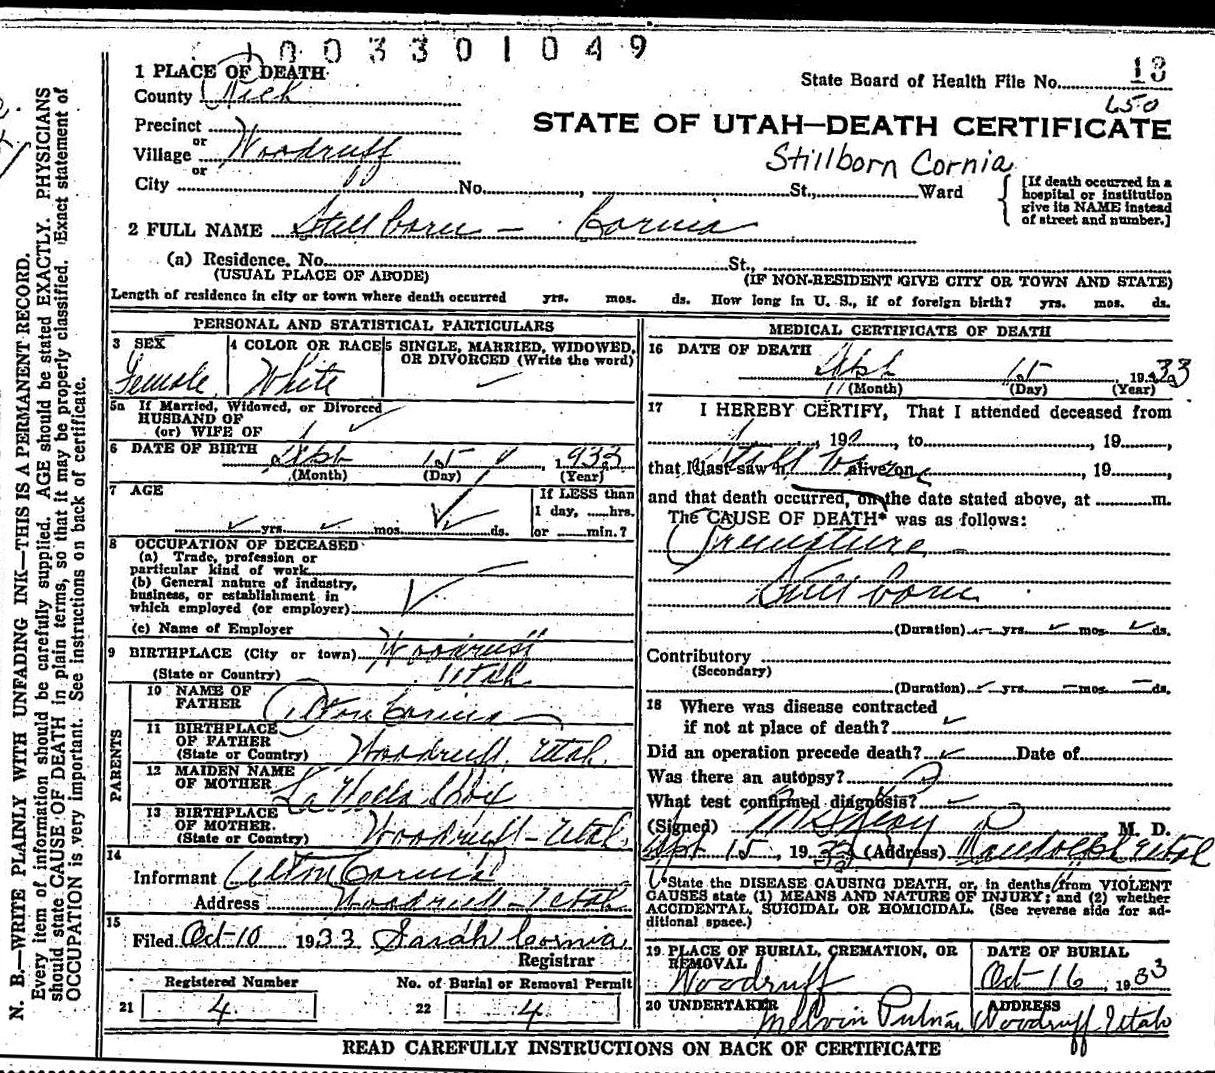 1003301049
1 PLACE OF DEATH
State Board of Health File No. 13
County Rich
650
Precinct
STATE OF UTAH—DEATH CERTIFICATE
or
Village Woodruff
Stillborn Cornia
or
City No. , St., Ward
[If death occurred in a
hospital or institution
give its NAME instead
of street and number.]
2 FULL NAME Stillborn - Cornia
(a) Residence. No. St.,
(USUAL PLACE OF ABODE) (IF NON-RESIDENT GIVE CITY OR TOWN AND STATE)
Length of residence in city or town where death occurred yrs. mos. ds. How long in U. S., if of foreign birth? yrs. mos. ds.
PERSONAL AND STATISTICAL PARTICULARS
3 SEX
Female
4 COLOR OR RACE
White
5 SINGLE, MARRIED, WIDOWED,
OR DIVORCED (Write the word)
5a If Married, Widowed, or Divorced
HUSBAND OF
(or) WIFE OF
6 DATE OF BIRTH Sept 15 , 1933
(Month) (Day) (Year)
7 AGE
yrs. mos. ds.
If LESS than
1 day, hrs.
or min.?
8 OCCUPATION OF DECEASED
(a) Trade, profession or
particular kind of work
(b) General nature of industry,
business, or establishment in
which employed (or employer)
(c) Name of Employer
9 BIRTHPLACE (City or town) Woodruff
(State or Country) Utah
PARENTS
10 NAME OF
FATHER Alton Cornia
11 BIRTHPLACE
OF FATHER
(State or Country) Woodruff, Utah.
12 MAIDEN NAME
OF MOTHER
13 BIRTHPLACE
OF MOTHER.
(State or Country) Woodruff - Utah.
14
Informant Alton Cornia
Address Woodruff - Utah
15
Filed Oct-10 1933 Sarah Cornia
Registrar
Registered Number
21 4
No. of Burial or Removal Permit
22 4
MEDICAL CERTIFICATE OF DEATH
16 DATE OF DEATH
Sept 15 , 1933
(Month) (Day) (Year)
17 I HEREBY CERTIFY, That I attended deceased from
, 19 , to , 19 ,
that I last saw h alive on , 19 ,
Stillborn
and that death occurred, on the date stated above, at m.
The CAUSE OF DEATH* was as follows:
Premature -
Stillborn
(Duration) yrs. mos. ds.
Contributory
(Secondary)
(Duration) yrs. mos. ds.
18 Where was disease contracted
if not at place of death?
Did an operation precede death? Date of
Was there an autopsy?
What test confirmed diagnosis?
(Signed) M. D.
Sept 15 , 1933 (Address) Randolph Utah
*State the DISEASE CAUSING DEATH, or, in deaths from VIOLENT
CAUSES state (1) MEANS AND NATURE OF INJURY; and (2) whether
ACCIDENTAL, SUICIDAL OR HOMICIDAL. (See reverse side for ad-
ditional space.)
19 PLACE OF BURIAL, CREMATION, OR
REMOVAL
Woodruff
DATE OF BURIAL
Oct-16, 1933
20 UNDERTAKER
Melvin Putnam
ADDRESS
Woodruff Utah
READ CAREFULLY INSTRUCTIONS ON BACK OF CERTIFICATE
N. B.—WRITE PLAINLY WITH UNFADING INK—THIS IS A PERMANENT RECORD.
Every item of information should be carefully supplied. AGE should be stated EXACTLY. PHYSICIANS
should state CAUSE OF DEATH in plain terms, so that it may be properly classified. Exact statement of
OCCUPATION is very important. See instructions on back of certificate.